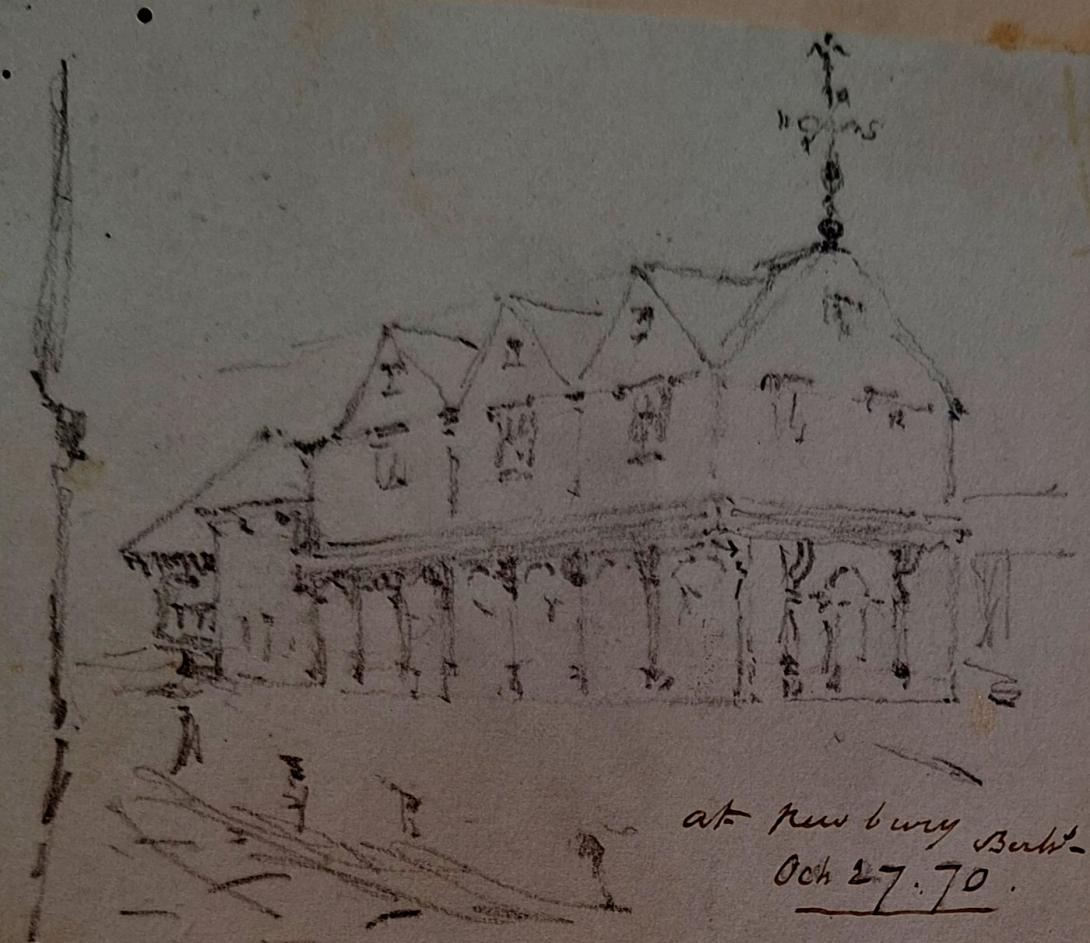 at Newbury Berks
Oct 27. 70.